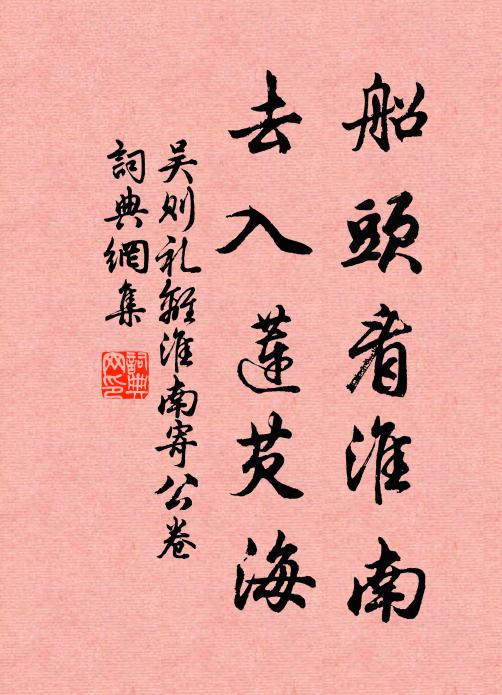 船頭看淮南
去入蓮芡海
吴则礼離淮南寄公卷
詞典網集
詞典網印